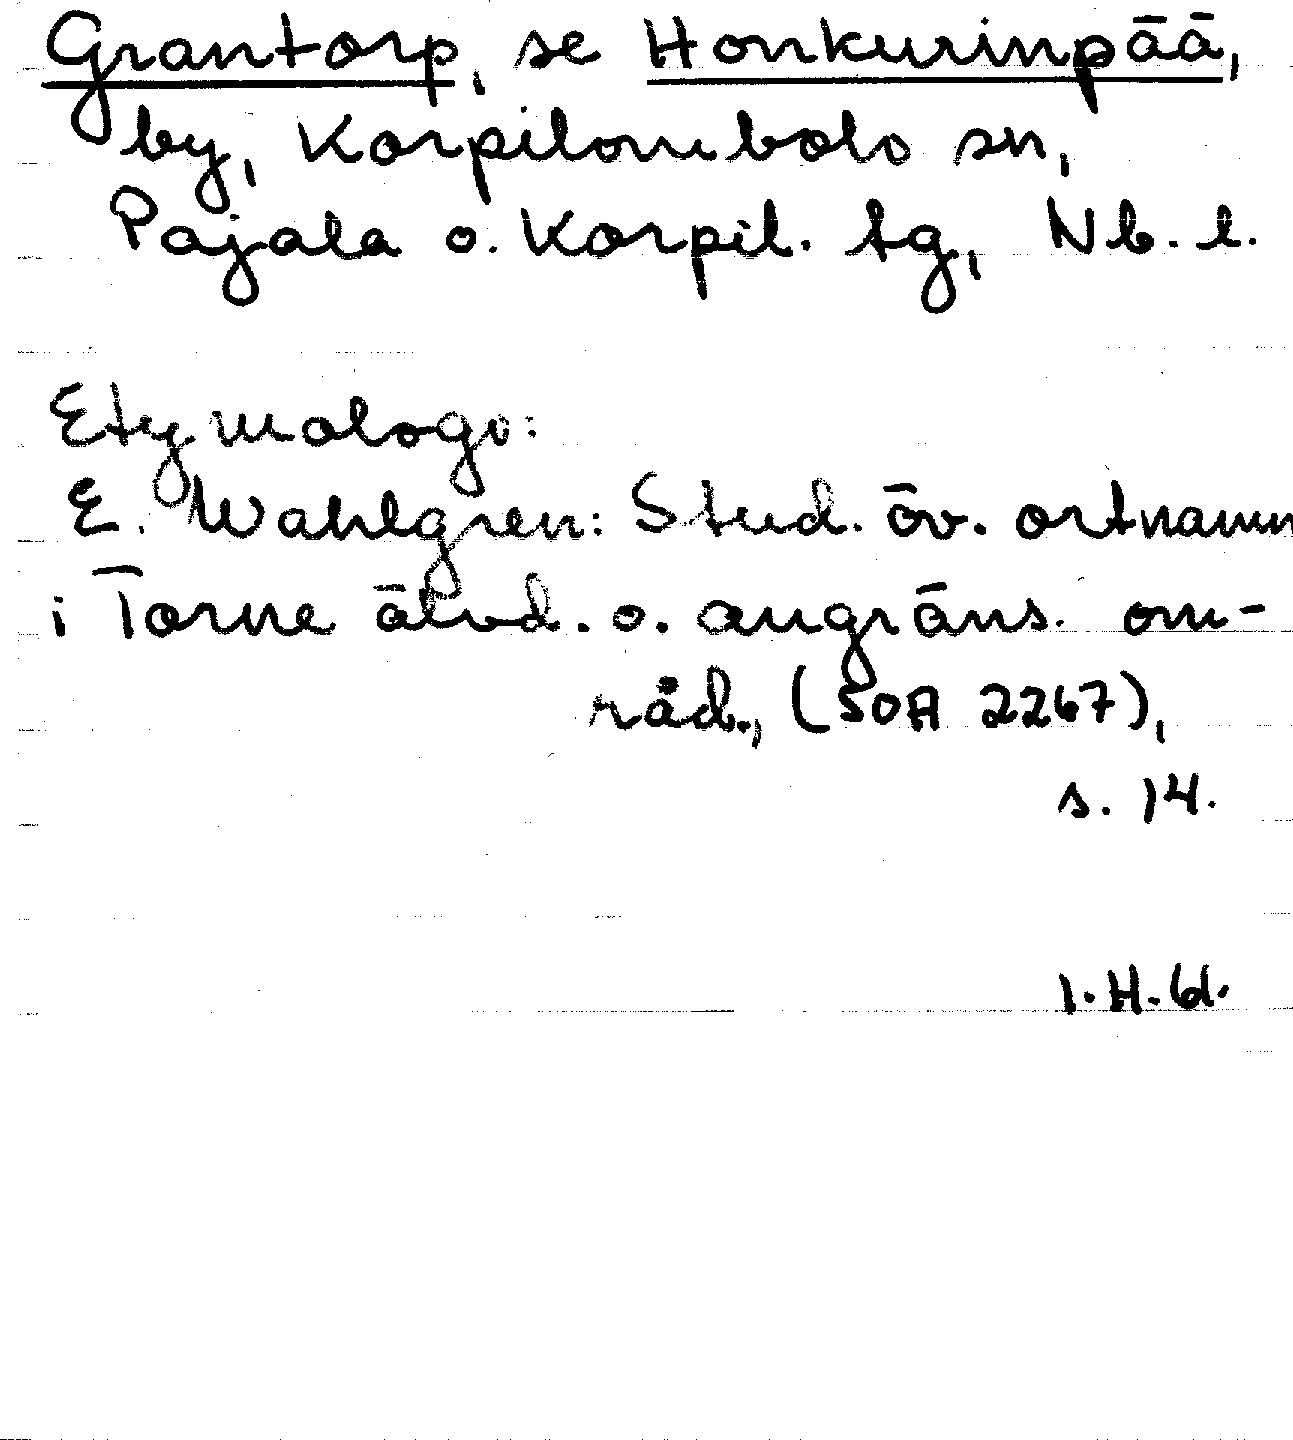 Grantorp, se Honkurinpää,
by, Korpilombolo sn,
Pajala o. Korpil. tg, Nb. l.
Etymologi:
E. Wahlgren: Stud. öv. ortnamn
i Torne älvd. o. angräns. om-
råd., (SOA 2267),
s. 14.
I.H.61.